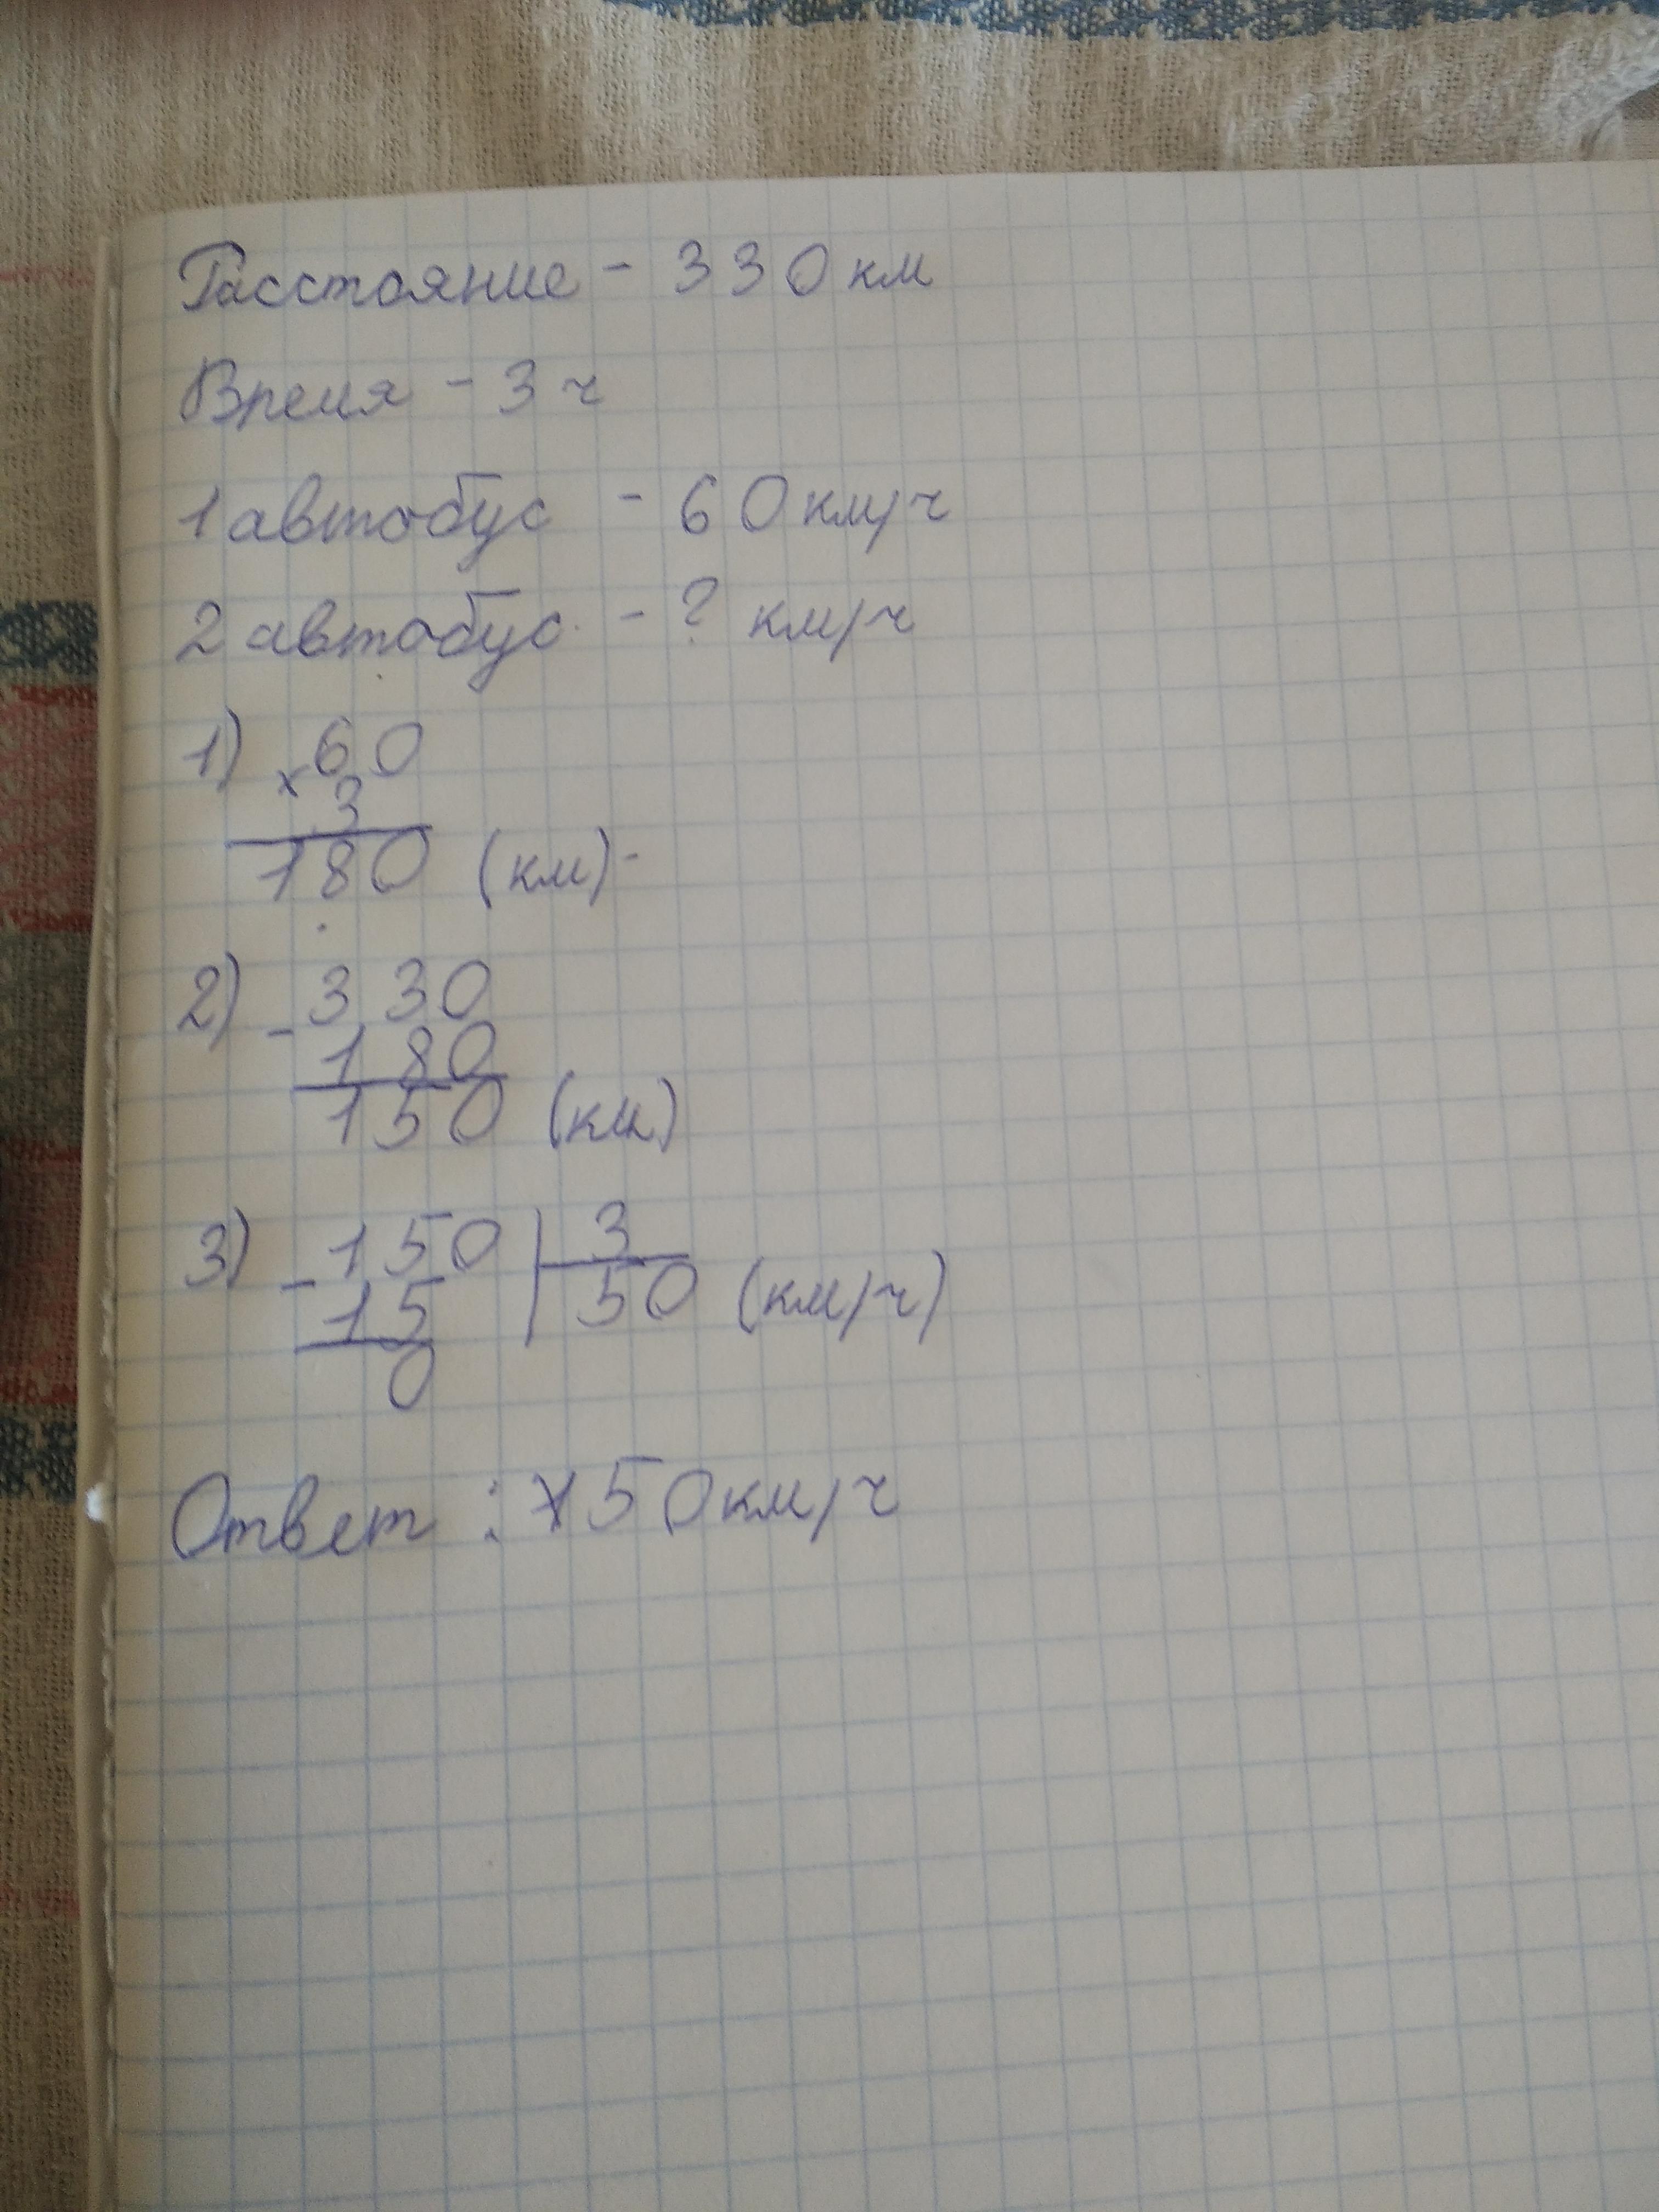 Расстояние - 330 км
Время - 3 ч
1 автобус - 60 км/ч
2 автобус - ? км/ч
1) х 60
3
180 (км)
2) - 330
180
150 (км)
3) - 150 | 3
15 50 (км/ч)
0
Ответ : 50 км/ч